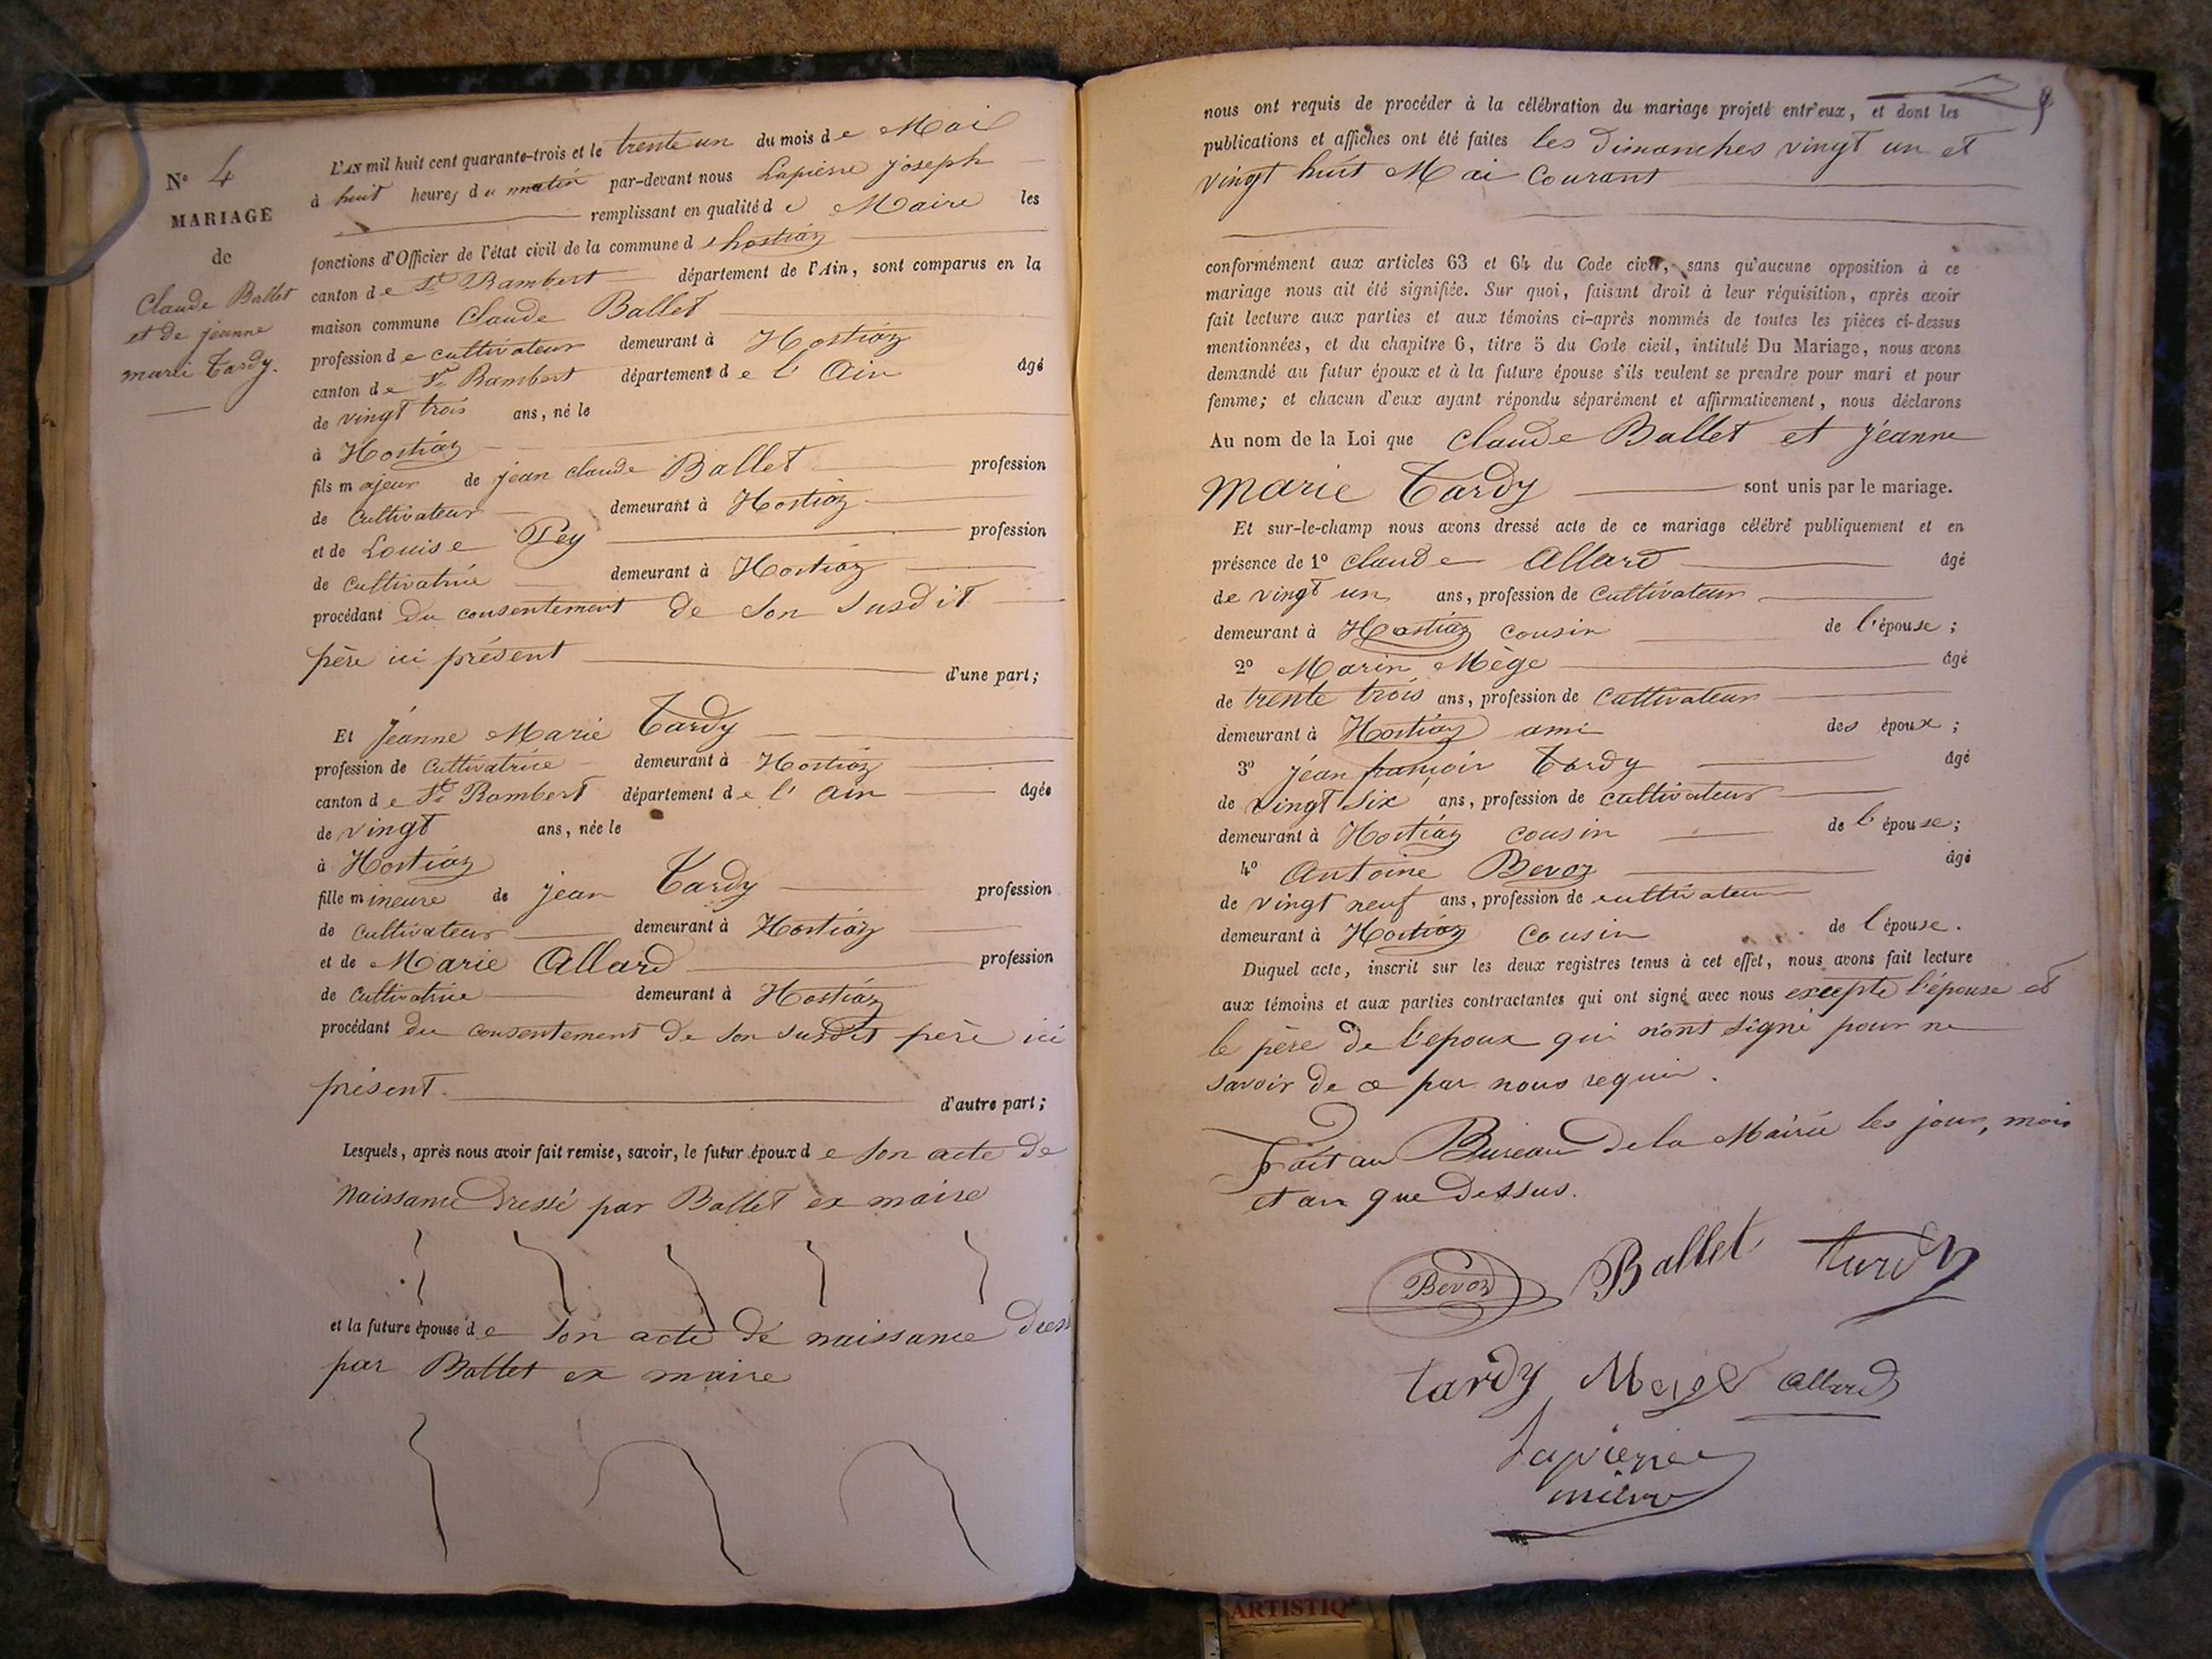 N° 4
MARIAGE
de
Claude Ballet
et de jeanne
marie Tardy.
L'AN mil huit cent quarante-trois et le trente un du mois de Mai
à huit heures du matin par-devant nous Lapierre joseph
remplissant en qualité de Maire les
fonctions d'Officier de l'état civil de la commune d'hostiaz
canton de St Rambert département de l'Ain, sont comparus en la
maison commune Claude Ballet
profession de cultivateur demeurant à Hostiaz
canton de St Rambert département de l'Ain âgé
de vingt trois ans, né le
à Hostiaz
fils majeur de jean claude Ballet profession
de cultivateur demeurant à Hostiaz
et de Louise Pey profession
de cultivatrice demeurant à Hostiaz
procédant du consentement de son susdit
père ici présent d'une part;
Et Jeanne Marie Tardy
profession de cultivatrice demeurant à Hostiaz
canton de St Rambert département de l'ain âgée
de vingt ans, née le
à Hostiaz
fille mineure de jean Tardy profession
de cultivateur demeurant à Hostiaz
et de Marie Allard profession
de cultivatrice demeurant à Hostiaz
procédant du consentement de son susdit père ici
présent. d'autre part;
Lesquels, après nous avoir fait remise, savoir, le futur époux de son acte de
Naissance dressé par Ballet ex maire
et la future épouse de son acte de naissance
par Ballet ex maire
nous ont requis de procéder à la célébration du mariage projeté entr'eux, et dont les
publications et affiches ont été faites les dimanches vingt un et
vingt huit Mai courant
conformément aux articles 63 et 64 du Code civil, sans qu'aucune opposition à ce
mariage nous ait été signifiée. Sur quoi, faisant droit à leur réquisition, après avoir
fait lecture aux parties et aux témoins ci-après nommés de toutes les pièces ci-dessus
mentionnées, et du chapitre 6, titre 5 du Code civil, intitulé Du Mariage, nous avons
demandé au futur époux et à la future épouse s'ils veulent se prendre pour mari et pour
femme; et chacun d'eux ayant répondu séparément et affirmativement, nous déclarons
Au nom de la Loi que Claude Ballet et Jeanne
Marie Tardy sont unis par le mariage.
Et sur-le-champ nous avons dressé acte de ce mariage célébré publiquement et en
présence de 1° claude Allard âgé
de vingt un ans, profession de cultivateur
demeurant à Hostiaz cousin de l'épouse;
2° Marin Mège âgé
de trente trois ans, profession de cultivateur
demeurant à Hostiaz ami des époux;
3° jean françois Tardy âgé
de vingt six ans, profession de cultivateur
demeurant à Hostiaz cousin de l'épouse;
4° Antoine Bevoz âgé
de vingt neuf ans, profession de cultivateur
demeurant à Hostiaz cousin de l'épouse.
Duquel acte, inscrit sur les deux registres tenus à cet effet, nous avons fait lecture
aux témoins et aux parties contractantes qui ont signé avec nous excepté l'épouse et
le père de l'epoux qui n'ont signé pour ne
savoir de ce par nous requis.
Fait au Bureau de la Mairie les jour, mois
et an que dessus.
Bevoz Ballet tardy
tardy Mege allard
Lapierre
maire
ARTISTIQ